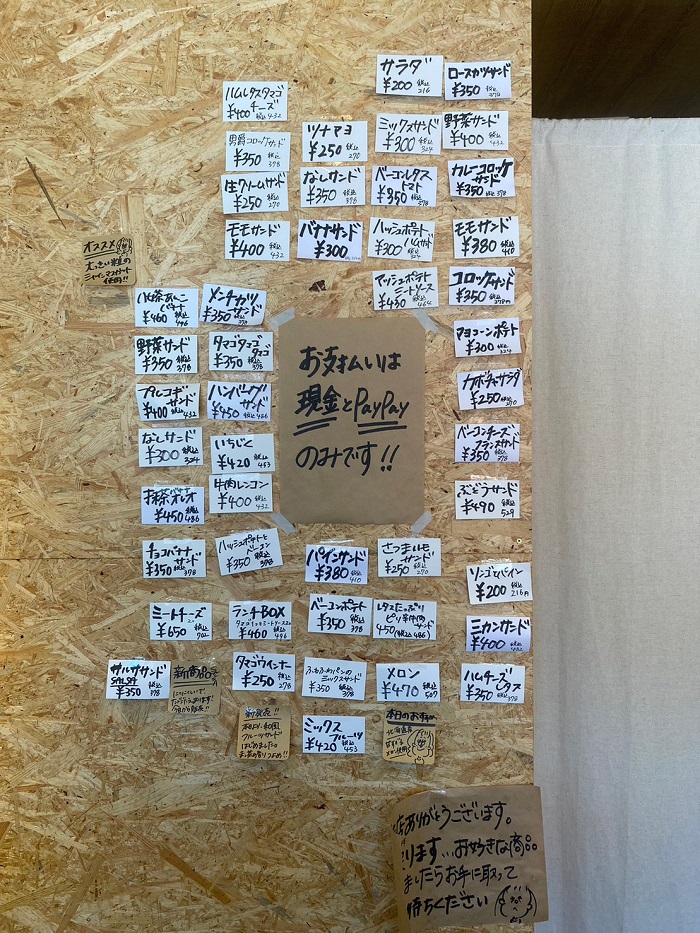 サラダ
¥200 税込216
ロースカツサンド
¥350 税込378
ハムレタスタマゴ
チーズ
¥400 税込432
男爵コロッケサンド
¥350 税込378
ツナマヨ
¥250 税込270
ミックスサンド
¥300 税込324
野菜サンド
¥400 税込432
生クリームサンド
¥250 税込270
なしサンド
¥350 税込378
ベーコンレタス
トマト
¥350 税込378
カレーコロッケ
サンド
¥350 税込378
モモサンド
¥400 税込432
バナナサンド
¥300
ハッシュポテト
ハムサンド
¥300 税込324
モモサンド
¥380 税込410
オススメ
大っきい粒の
シャインマスカット
使用!!
マッシュポテト
ミートソース
¥430 税込464
コロッケサンド
¥350 税込378円
抹茶あんこ
バナナ
¥460 税込496
メンチカツ
サンド
¥350 税込378
マヨコーンポテト
¥300 税込324
野菜サンド
¥350 税込378
タマゴタマゴ
タマゴ
¥350 税込378
お支払いは
現金とPayPay
のみです!!
カボチャサラダ
¥250 税込270
プルコギ
サンド
¥400 税込432
ハンバーグ
サンド
¥450 税込486
ベーコンチーズ
フランスサンド
¥350 税込378
なしサンド
¥300 税込324
いちじく
¥420 税込453
抹茶バナナ
オレオ
¥450 税込486
牛肉レンコン
¥400 税込432
ぶどうサンド
¥490 税込529
チョコバナナ
サンド
¥350 税込378
ハッシュポテトと
ベーコン
¥350 税込378
パインサンド
¥380 税込410
さつまイモ
サンド
¥250 税込270
リンゴとパイン
¥200 税込216円
ミートチーズ
¥650 税込702
ランチBOX
¥460 税込496
ベーコンポテト
¥350 税込378
レタスたっぷり
ピリ辛中肉サンド
450(税込486)
ミカンサンド
¥400 税込432
サルササンド
SALSA
¥350 税込378
新商品
タマゴウインナー
¥250 税込270
ふわふわパンの
ミックスサンド
¥350 税込378
メロン
¥470 税込507
ハムチーズ
レタス
¥350 税込378
新発売!!
フルーツサンド
はじめました
ミックス
フルーツ
¥420 税込453
本日のおすすめ
北海道産
メロン使用
ありがとうございます。
ります…お好きな商品
ましたらお手に取って
待ちください